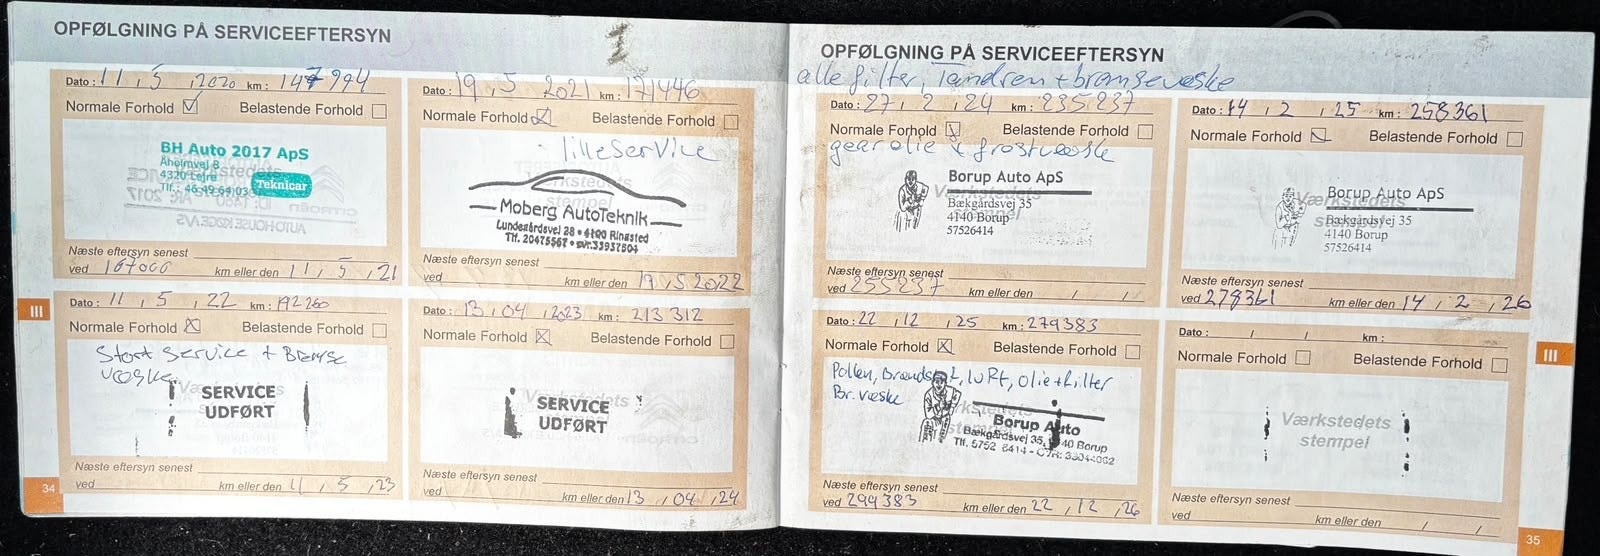 OPFØLGNING PÅ SERVICEEFTERSYN
Dato : 11 , 5 , 2020 km : 147994
Normale Forhold Belastende Forhold
BH Auto 2017 ApS
Åholmvej 8
4320 Lejre
Tlf.: 46 49 64 03
Teknicar
Næste eftersyn senest
ved 167000 km eller den 11 , 5 , 21
Dato : 19 , 5 2021 km : 171446
Normale Forhold Belastende Forhold
lilleservice
Moberg AutoTeknik
Lundegårdsvej 28 • 4100 Ringsted
Tlf. 20475567 •
Næste eftersyn senest
ved km eller den 19 , 5 2022
Dato : 11 , 5 , 22 km : 192260
Normale Forhold Belastende Forhold
Stort service + Bremse
væske
SERVICE
UDFØRT
Næste eftersyn senest
ved km eller den 11 , 5 , 23
Dato : 13 , 04 , 2023 km : 213312
Normale Forhold Belastende Forhold
SERVICE
UDFØRT
Næste eftersyn senest
ved km eller den 13 , 04 , 24
III
34
OPFØLGNING PÅ SERVICEEFTERSYN
alle filter, Tændrør + bremsevæske
Dato : 27 , 2 , 24 km : 235237
Normale Forhold Belastende Forhold
gear olie + frostvæske
Værkstedets
stempel
Borup Auto ApS
Bækgårdsvej 35
4140 Borup
57526414
Næste eftersyn senest
ved 255237 km eller den / /
Dato : 14 , 2 , 25 km : 258361
Normale Forhold Belastende Forhold
Værkstedets
stempel
Borup Auto ApS
Bækgårdsvej 35
4140 Borup
57526414
Næste eftersyn senest
ved 278361 km eller den 14 , 2 , 26
Dato : 22 , 12 , 25 km : 279383
Normale Forhold Belastende Forhold
Pollen, luft, olie + filter
Br. væske
Borup Auto
Bækgårdsvej 35, 40 Borup
Tlf. 5752 6414 -
Næste eftersyn senest
ved 299383 km eller den 22 , 12 , 26
Dato : / / km :
Normale Forhold Belastende Forhold
Værkstedets
stempel
Næste eftersyn senest
ved km eller den / /
III
35